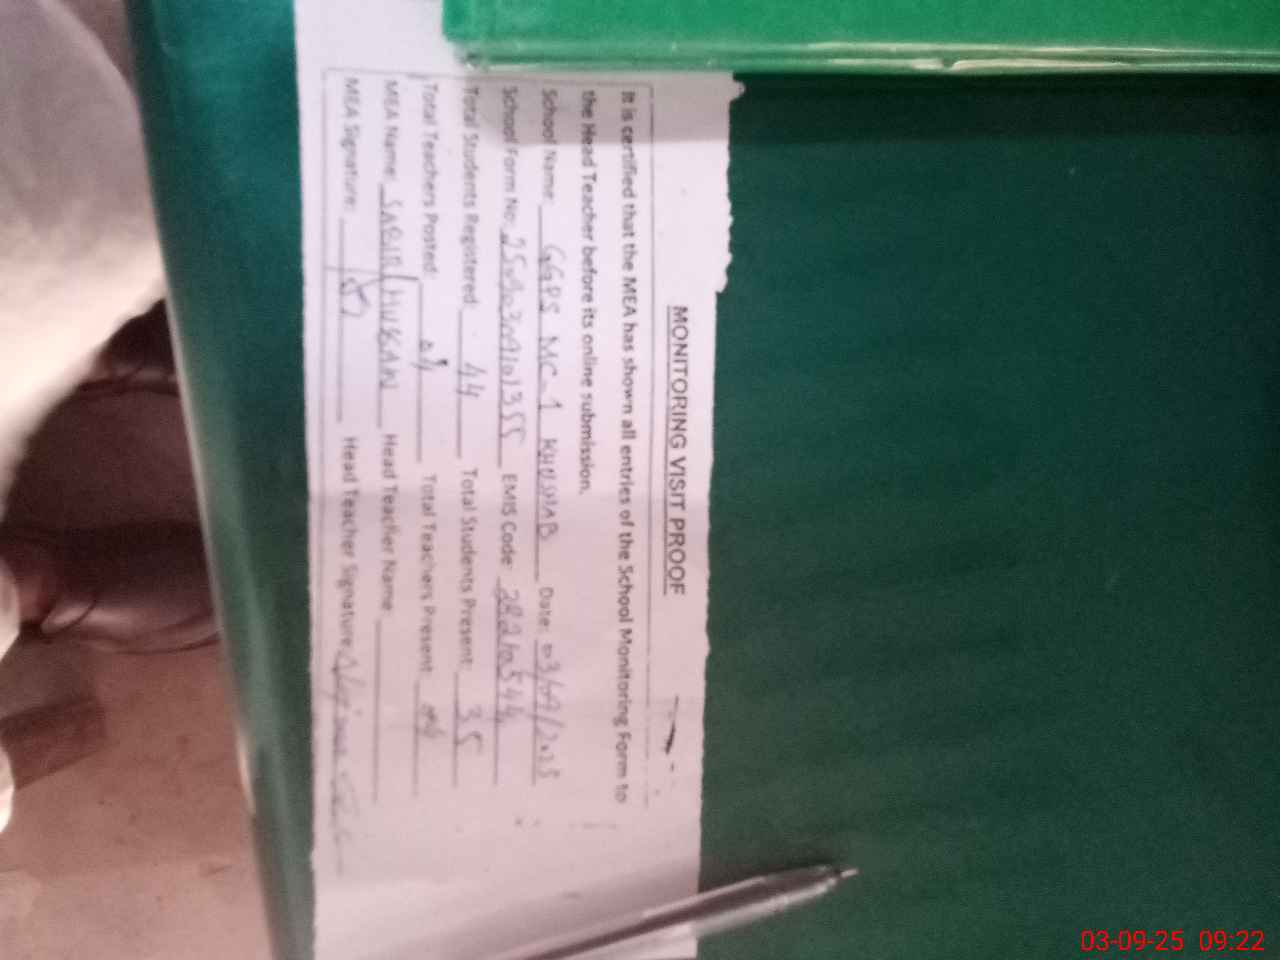 MONITORING VISIT PROOF
It is certified that the MEA has shown all entries of the School Monitoring Form to
the Head Teacher before its online submission.
School Name: GGPS MC-1 KHUSHAB Date: 03/09/2025
School Form No: EMIS Code:
Total Students Registered: 44 Total Students Present: 35
Total Teachers Posted: 04 Total Teachers Present: 04
MEA Name: SABIR Head Teacher Name:
MEA Signature: Head Teacher Signature:
03-09-25 09:22